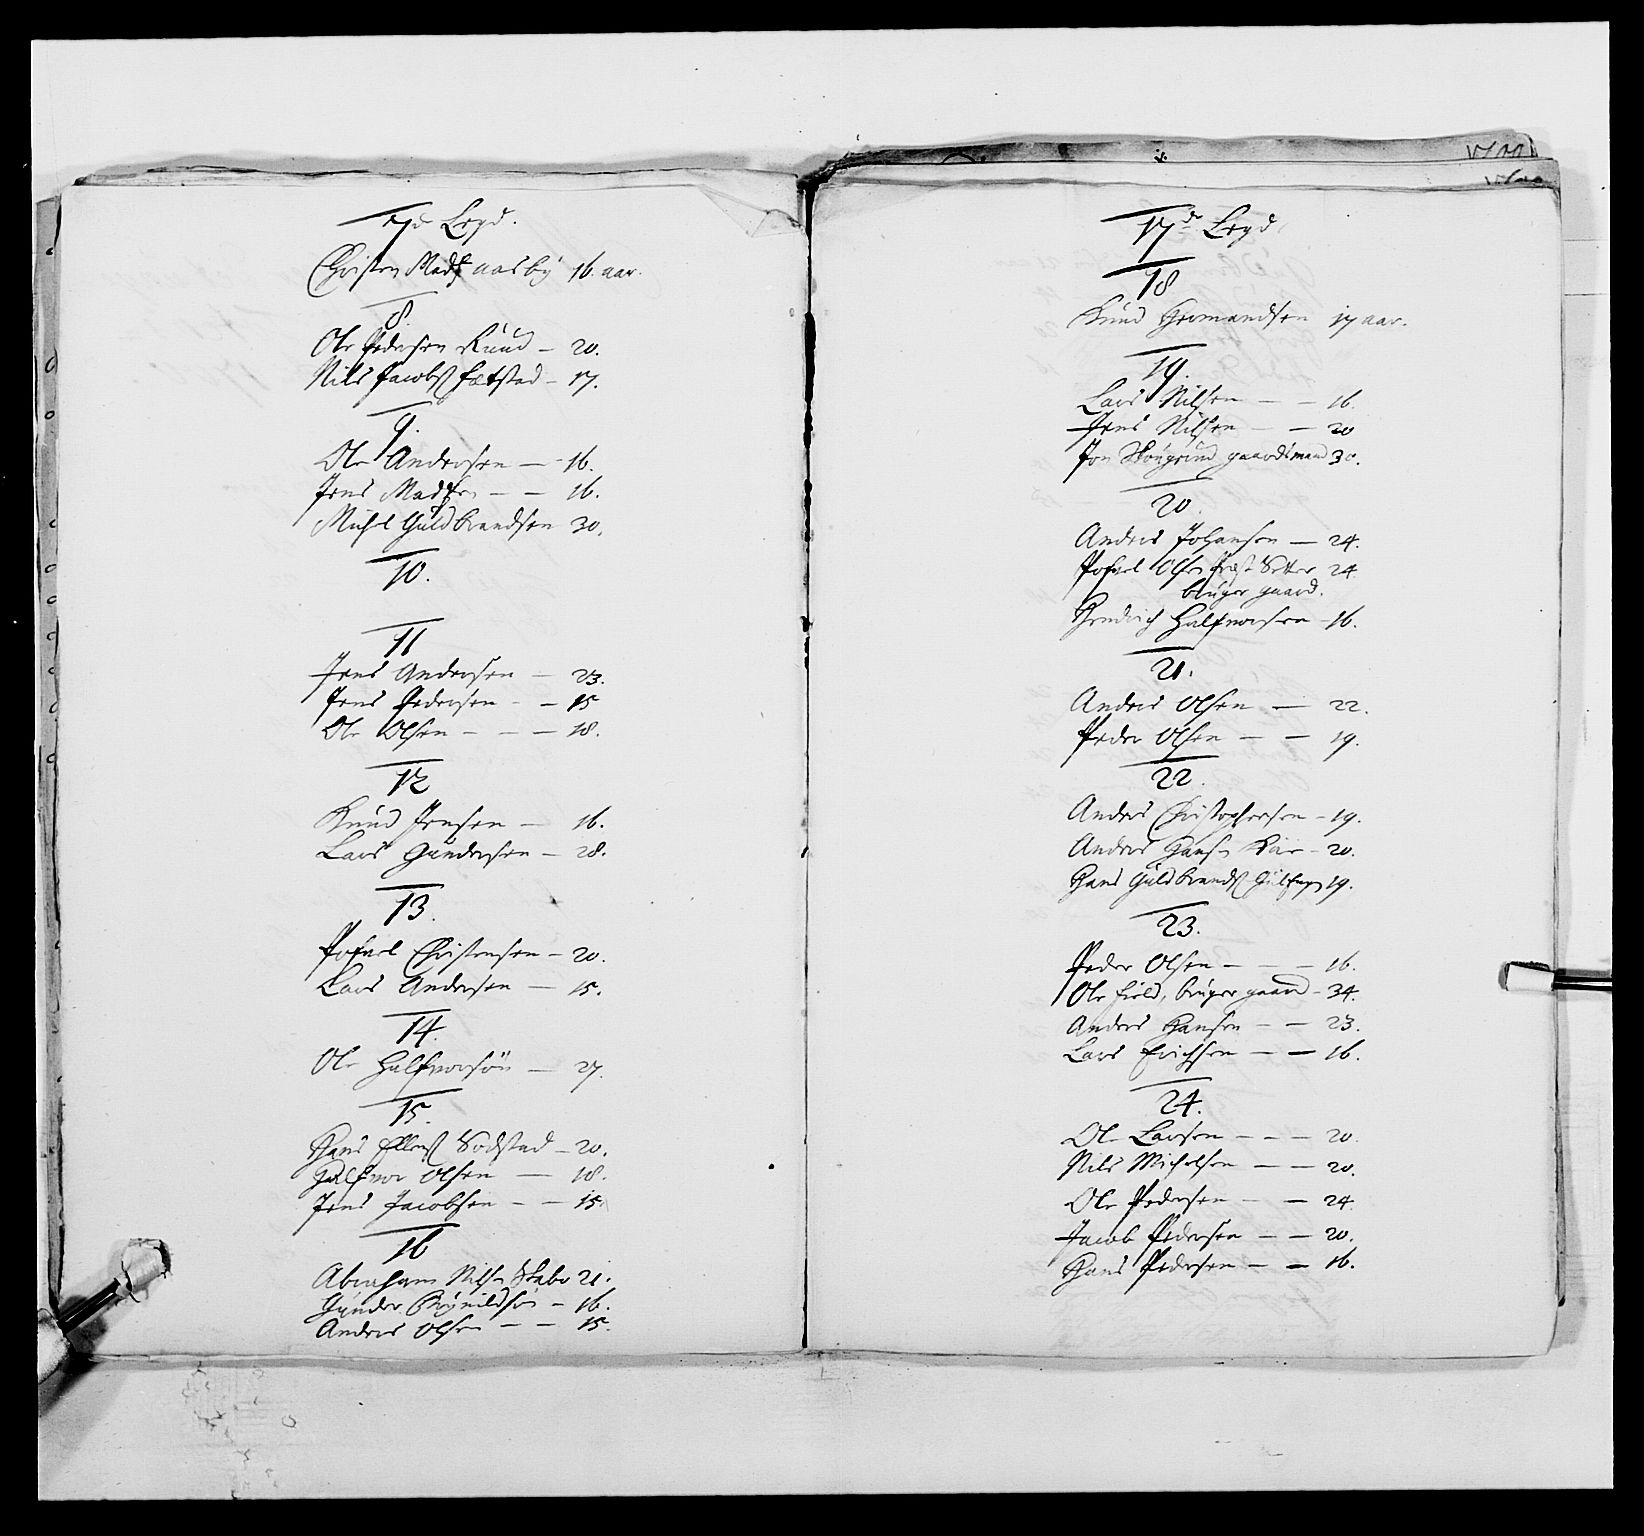 7de Legd.
Christen Mads aasby 16. aar.
8.
Ole Pedersen Ruud – 20.
Nils Jacobs Fætstad – 17.
9.
Ole Andersen – 16.
Jens Madsen – – 16.
Michel Guldbrandsen 30.
10.
11
Jens Andersen – 23.
Jens Pedersen – – 15
Ole Olsen – – – 18.
12
Knud Jensen – 16.
Lars Gundersen – 28.
13.
Pofvel Christensen – 20.
Lars Andersen – 15.
14.
Ole Halfvorsön – 27.
15.
Hans Ellens Sodstad – 20.
Halfvor Olsen – 18.
Jens Jacobsen – – 15.
16
Abraham Nilsen Skabo 21.
Gunder – 16.
Anders Olsen – – 15.
17de Legd
18
Knud Hermandsen 17 aar.
19.
Lars Nilsen – – 16.
Jens Nilsen – – 20
Jon gaardsmand 30.
20.
Anders Johansen – 24.
Pofvel Olsen Sætter 24
bruger gaard.
Hendrich Halfvorsen – 16.
21.
Anders Olsen – 22.
Peder Olsen – – 19.
22.
Anders Christophersen – 19.
Anders Hansen – 20.
Hans Guldbrands 19.
23.
Peder Olsen – – – 16.
Ole Field, bruger gaard – 34.
Anders Hansen – – 23.
Lars Erichsen – – 16.
24.
Ole Larsen – – – 20.
Nils Michelsen – – 20.
Ole Pedersen – – 24.
Jacob Pedersen – – 20.
Hans Pedersen – – 16.